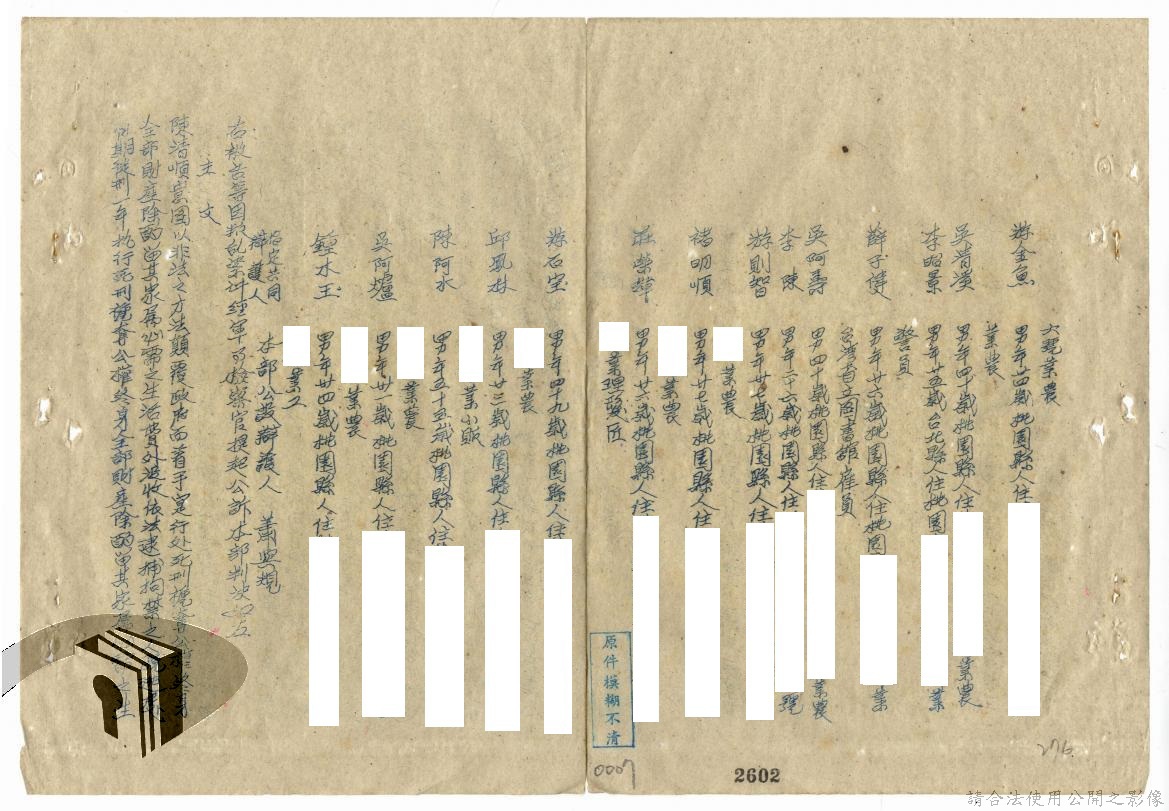 六號業農
游金魚 男年廿四歲桃園縣人住
業農
吳清漢 男年四十歲桃園縣人住 業農
李昭景 男年廿五歲台北縣人住桃園 業
警員
薛子 男年廿六歲桃園縣人住桃園 業
台灣省立圖書館雇員
吳阿壽 男四十歲桃園縣人住 業農
李陳 男年三十六歲桃園縣人住 號
游則智 男年廿七歲桃園縣人住
業農
褚明順 男年廿七歲桃園縣人住
業農
莊榮 男年廿六歲桃園縣人住
業理髮匠
游石定 男年四十九歲桃園縣人住
業農
邱鳳林 男年廿三歲桃園縣人住
業小販
陳阿水 男年五十五歲桃園縣人住
業農
吳阿爐 男年廿一歲桃園縣人住
業農
鍾水玉 男年廿四歲桃園縣人住
業工
指定共同辯護人 本部公設辯護人 蕭
右被告等因叛乱案件經軍事檢察官提起公訴本部判決如左
主文
陳清順意圖以非法之方法顛覆政府而着手實行处死刑褫奪公權終身
全部財產除酌留其家屬必需之生活費外沒收依法逮捕拘禁之人
有期徒刑一年執行死刑褫奪公權終身全部財產除酌留其家屬
原件模糊不清
0007
2602
276
請合法使用公開之影像